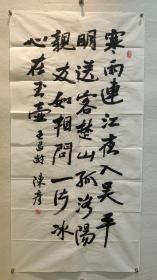 寒雨連江夜入吴平
明送客楚山孤洛陽
親友如相問一片冰
心在玉壶 王昌龄 陳